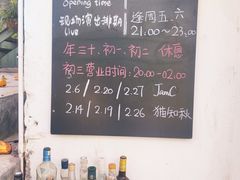 Opening time
现场演出排期 逢周五.六
Live 21:00~23:00
年三十.初一.初二 休息
初三营业时间: 20:00-02:00
2.6 / 2.20 / 2.27 JamC
2.14 / 2.19 / 2.26 猫知秋